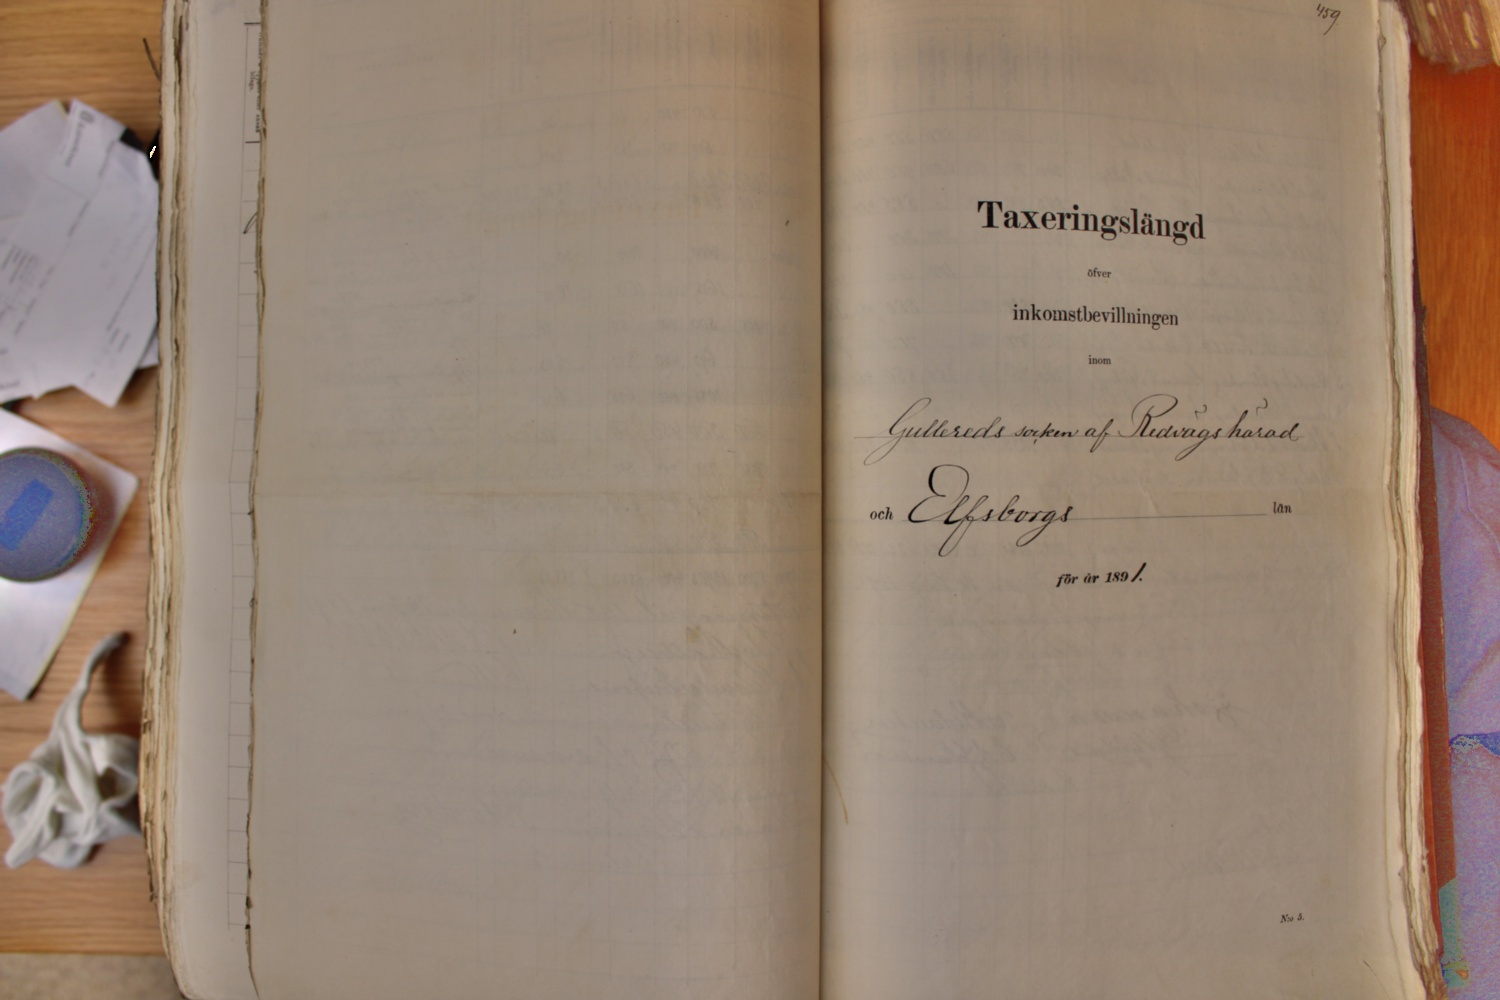 459
Taxeringslängd
öfver
inkomstbevillningen
inom
Gullereds socken af Redvägs härad
och Elfsborgs län
för år 1891.
No 5.